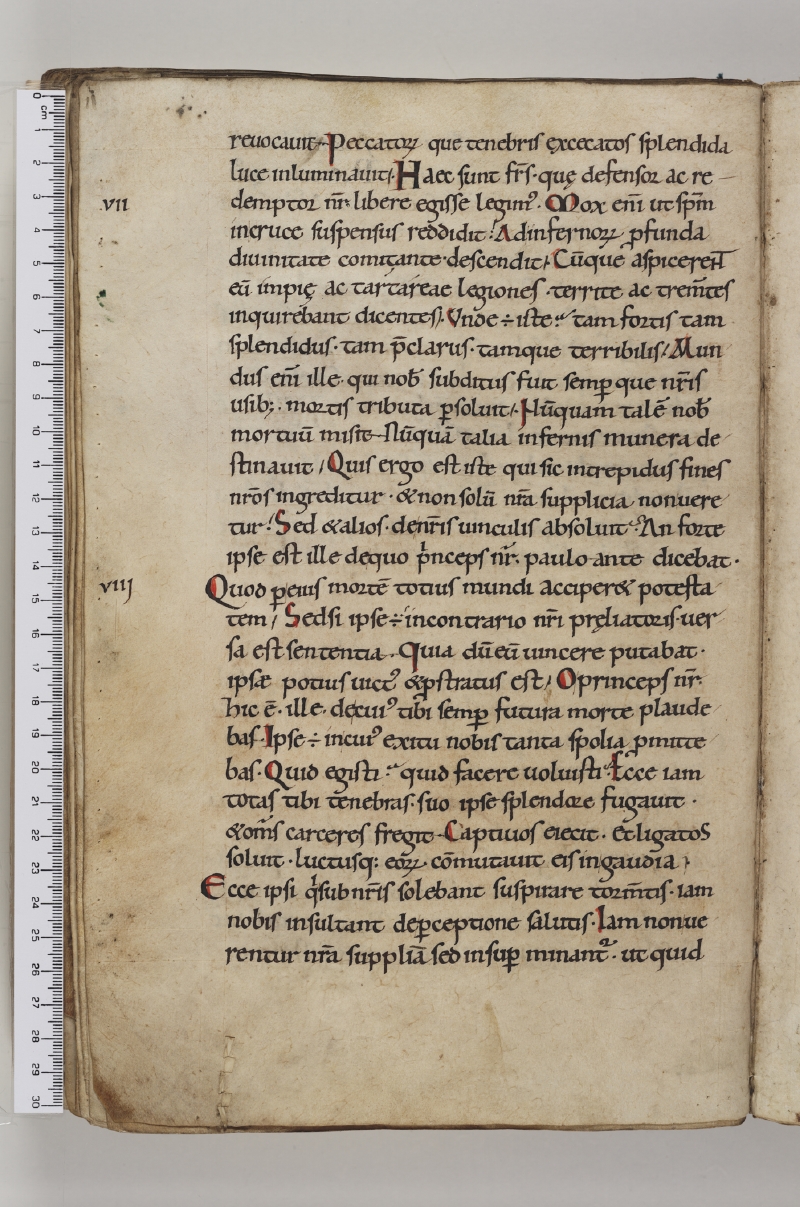 reuocauit· Peccatoꝝ que tenebris excecatos splendida
luce inluminauit· Haec sunt fr̄s· quę defensor ac re
vii demptor nr̄· libere egisse legimꝰ· Mox eni̅ ut sp̅m
incruce suspensus reddidit· Adinfernoꝝ ꝓfunda
diuinitate comitante· descendit· Cūque aspicerent
eū impię ac tartareae legiones· territe ac trem̅tes
inquirebant dicentes· Vnde ÷ iste· tam fortis tam
splendidus· tam p̅clarus· tamque terribilis· Mun
dus eni̅ ille· qui nob̅ subditus fuit semꝑ que nr̅is
usibꝫ· mortis tributa ꝑsoluit· Nūquam talē nob̅
mortuū misit· Nūquā talia infernis munera de
stinauit· Quis ergo est iste qui sic intrepidus fines
nr̅os ingreditur· & non solū nr̅a supplicia non uere
tur· Sed & alios· denr̅is uinculis absoluit· An forte
ipse est ille dequo p̍nceps nr̅· paulo ante dicebat·
viij Quod ꝑ eius mortē totius mundi acciper& potesta
tem· Sed si ipse ÷ incontrario nr̅i pręliatoris· uer
sa est sententia· Quia dū eū uincere putabat·
ipsæ potius uictꝰ & ꝓstratus est· O princeps nr̅·
hic ē· ille· decuiꝰ tibi semꝑ futura morte plaude
bas· Ipse ÷ incuiꝰ exitu nobis tanta spolia ꝓmitte
bas· Quid egisti· quid facere uoluisti· Ecce iam
totas tibi tenebras· suo ipse splendore fugauit·
& om̅s carceres fregit· Captiuos eiecit· Et ligatos
soluit· luctusqꝫ eoꝝ· cōmutauit eis ingaudia·
Ecce ipsi q̍ sub nr̅is solebant suspirare torm̅tis· iam
nobis insultant deꝑceptione salutis· Iam non ue
rentur nr̅a supplia̅ sed insuꝑ minant᷑· ut quid